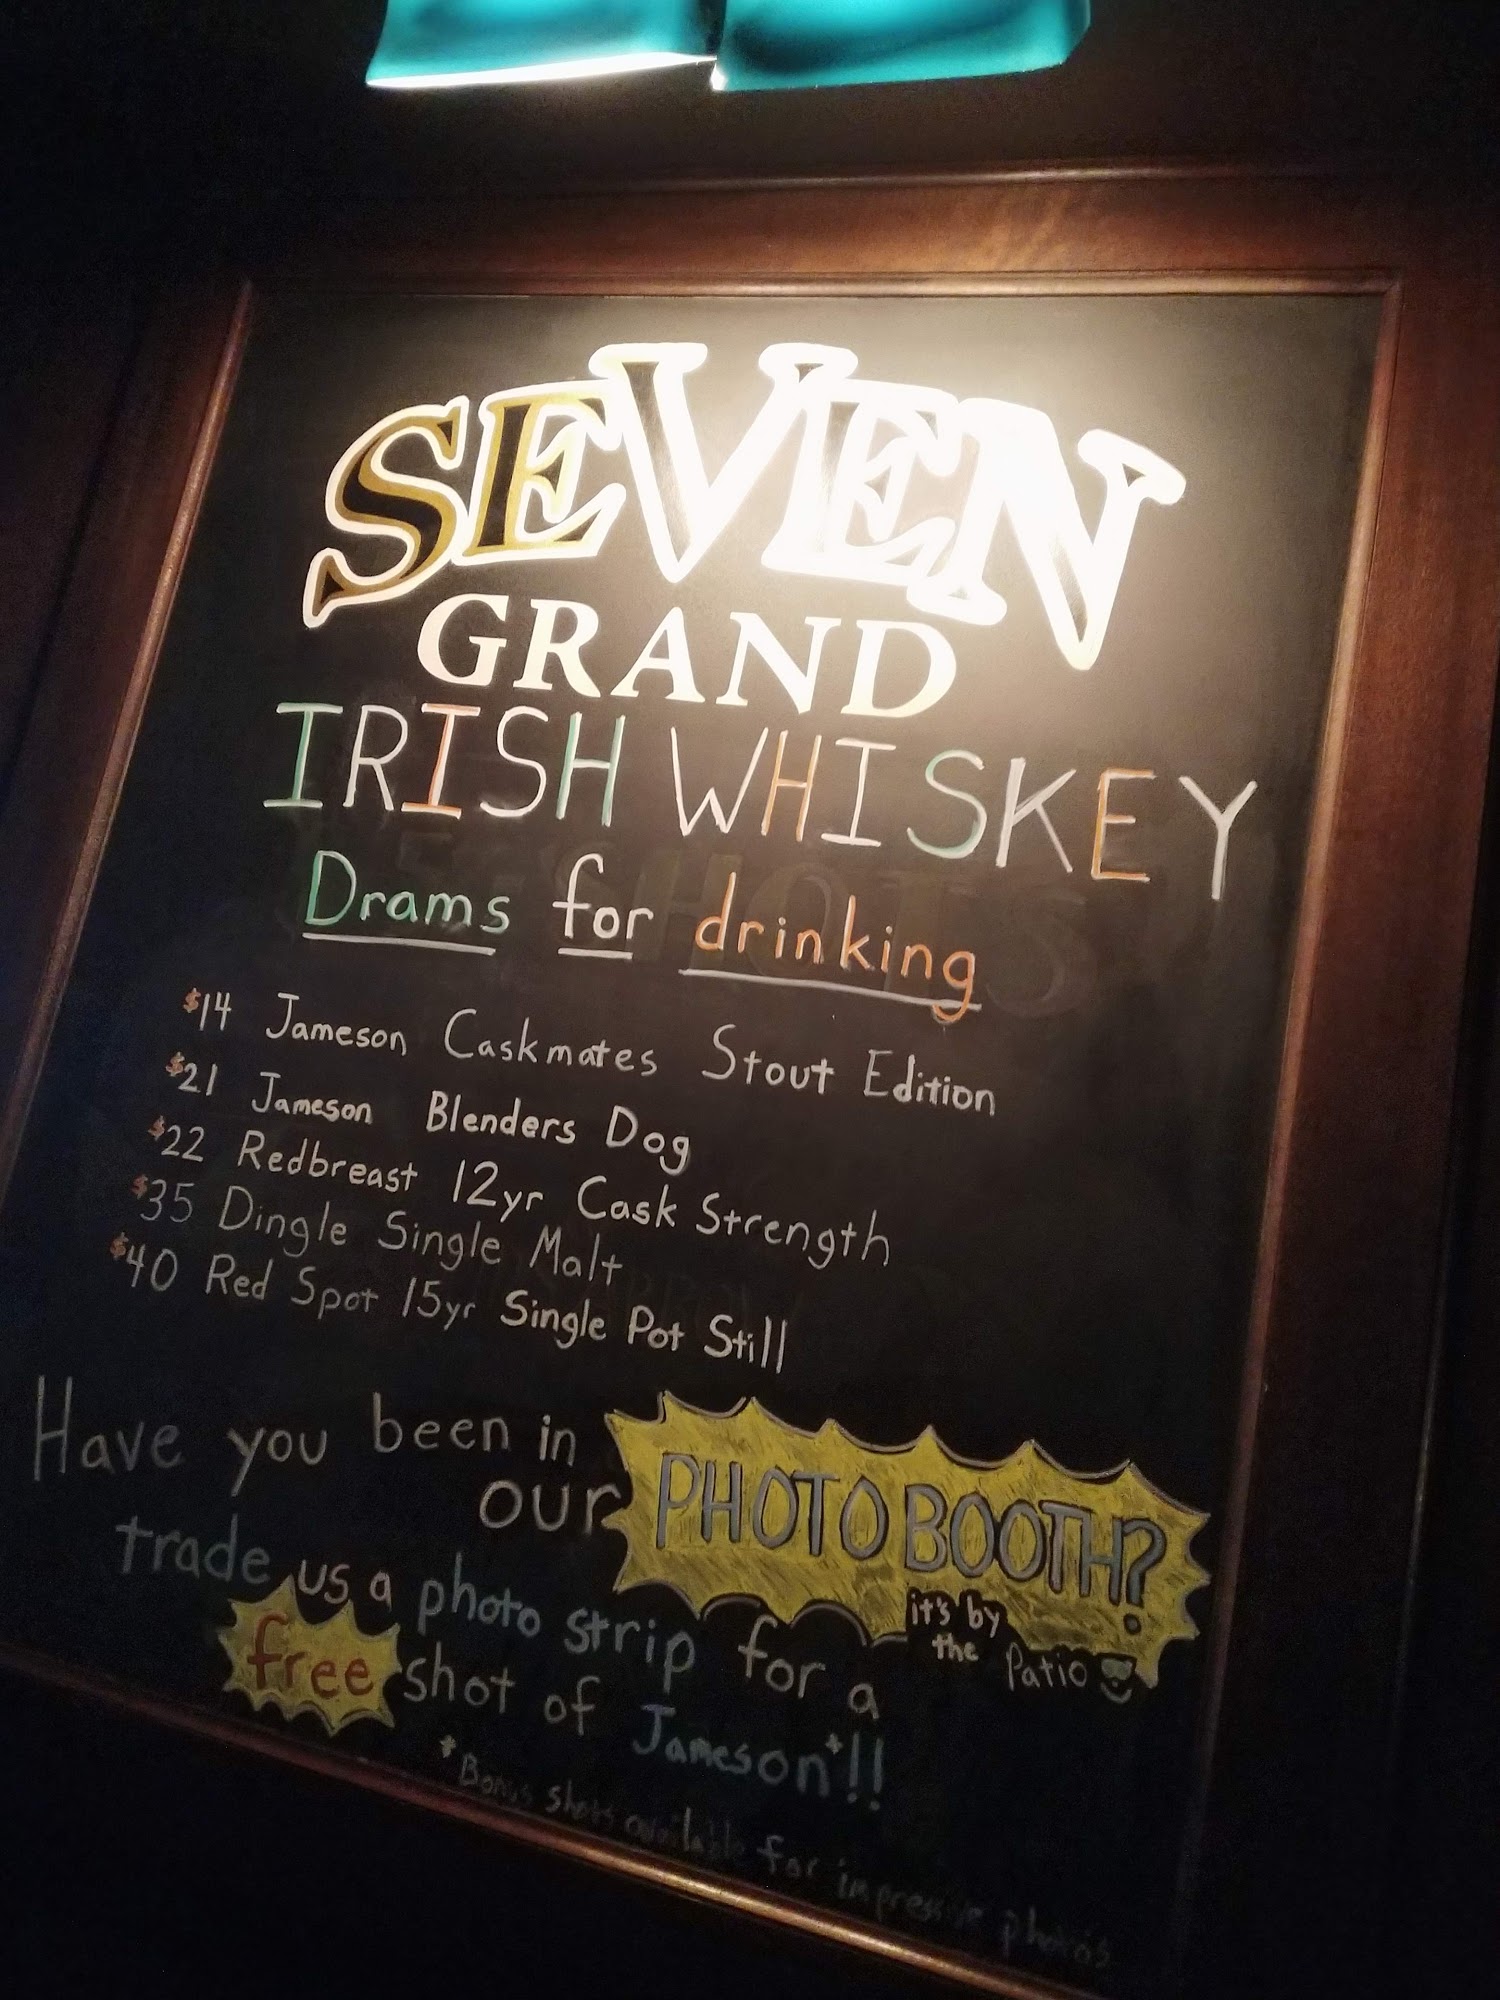 SEVEN
GRAND
IRISH WHISKEY
Drams for drinking
$14 Jameson Caskmates Stout Edition
$21 Jameson Blenders Dog
$22 Redbreast 12yr Cask Strength
$35 Dingle Single Malt
$40 Red Spot 15yr Single Pot Still
Have you been in
our PHOTO BOOTH?
it's by
the Patio
trade us a photo strip for a
free shot of Jameson*!!
*Bonus shots available for impressive photos